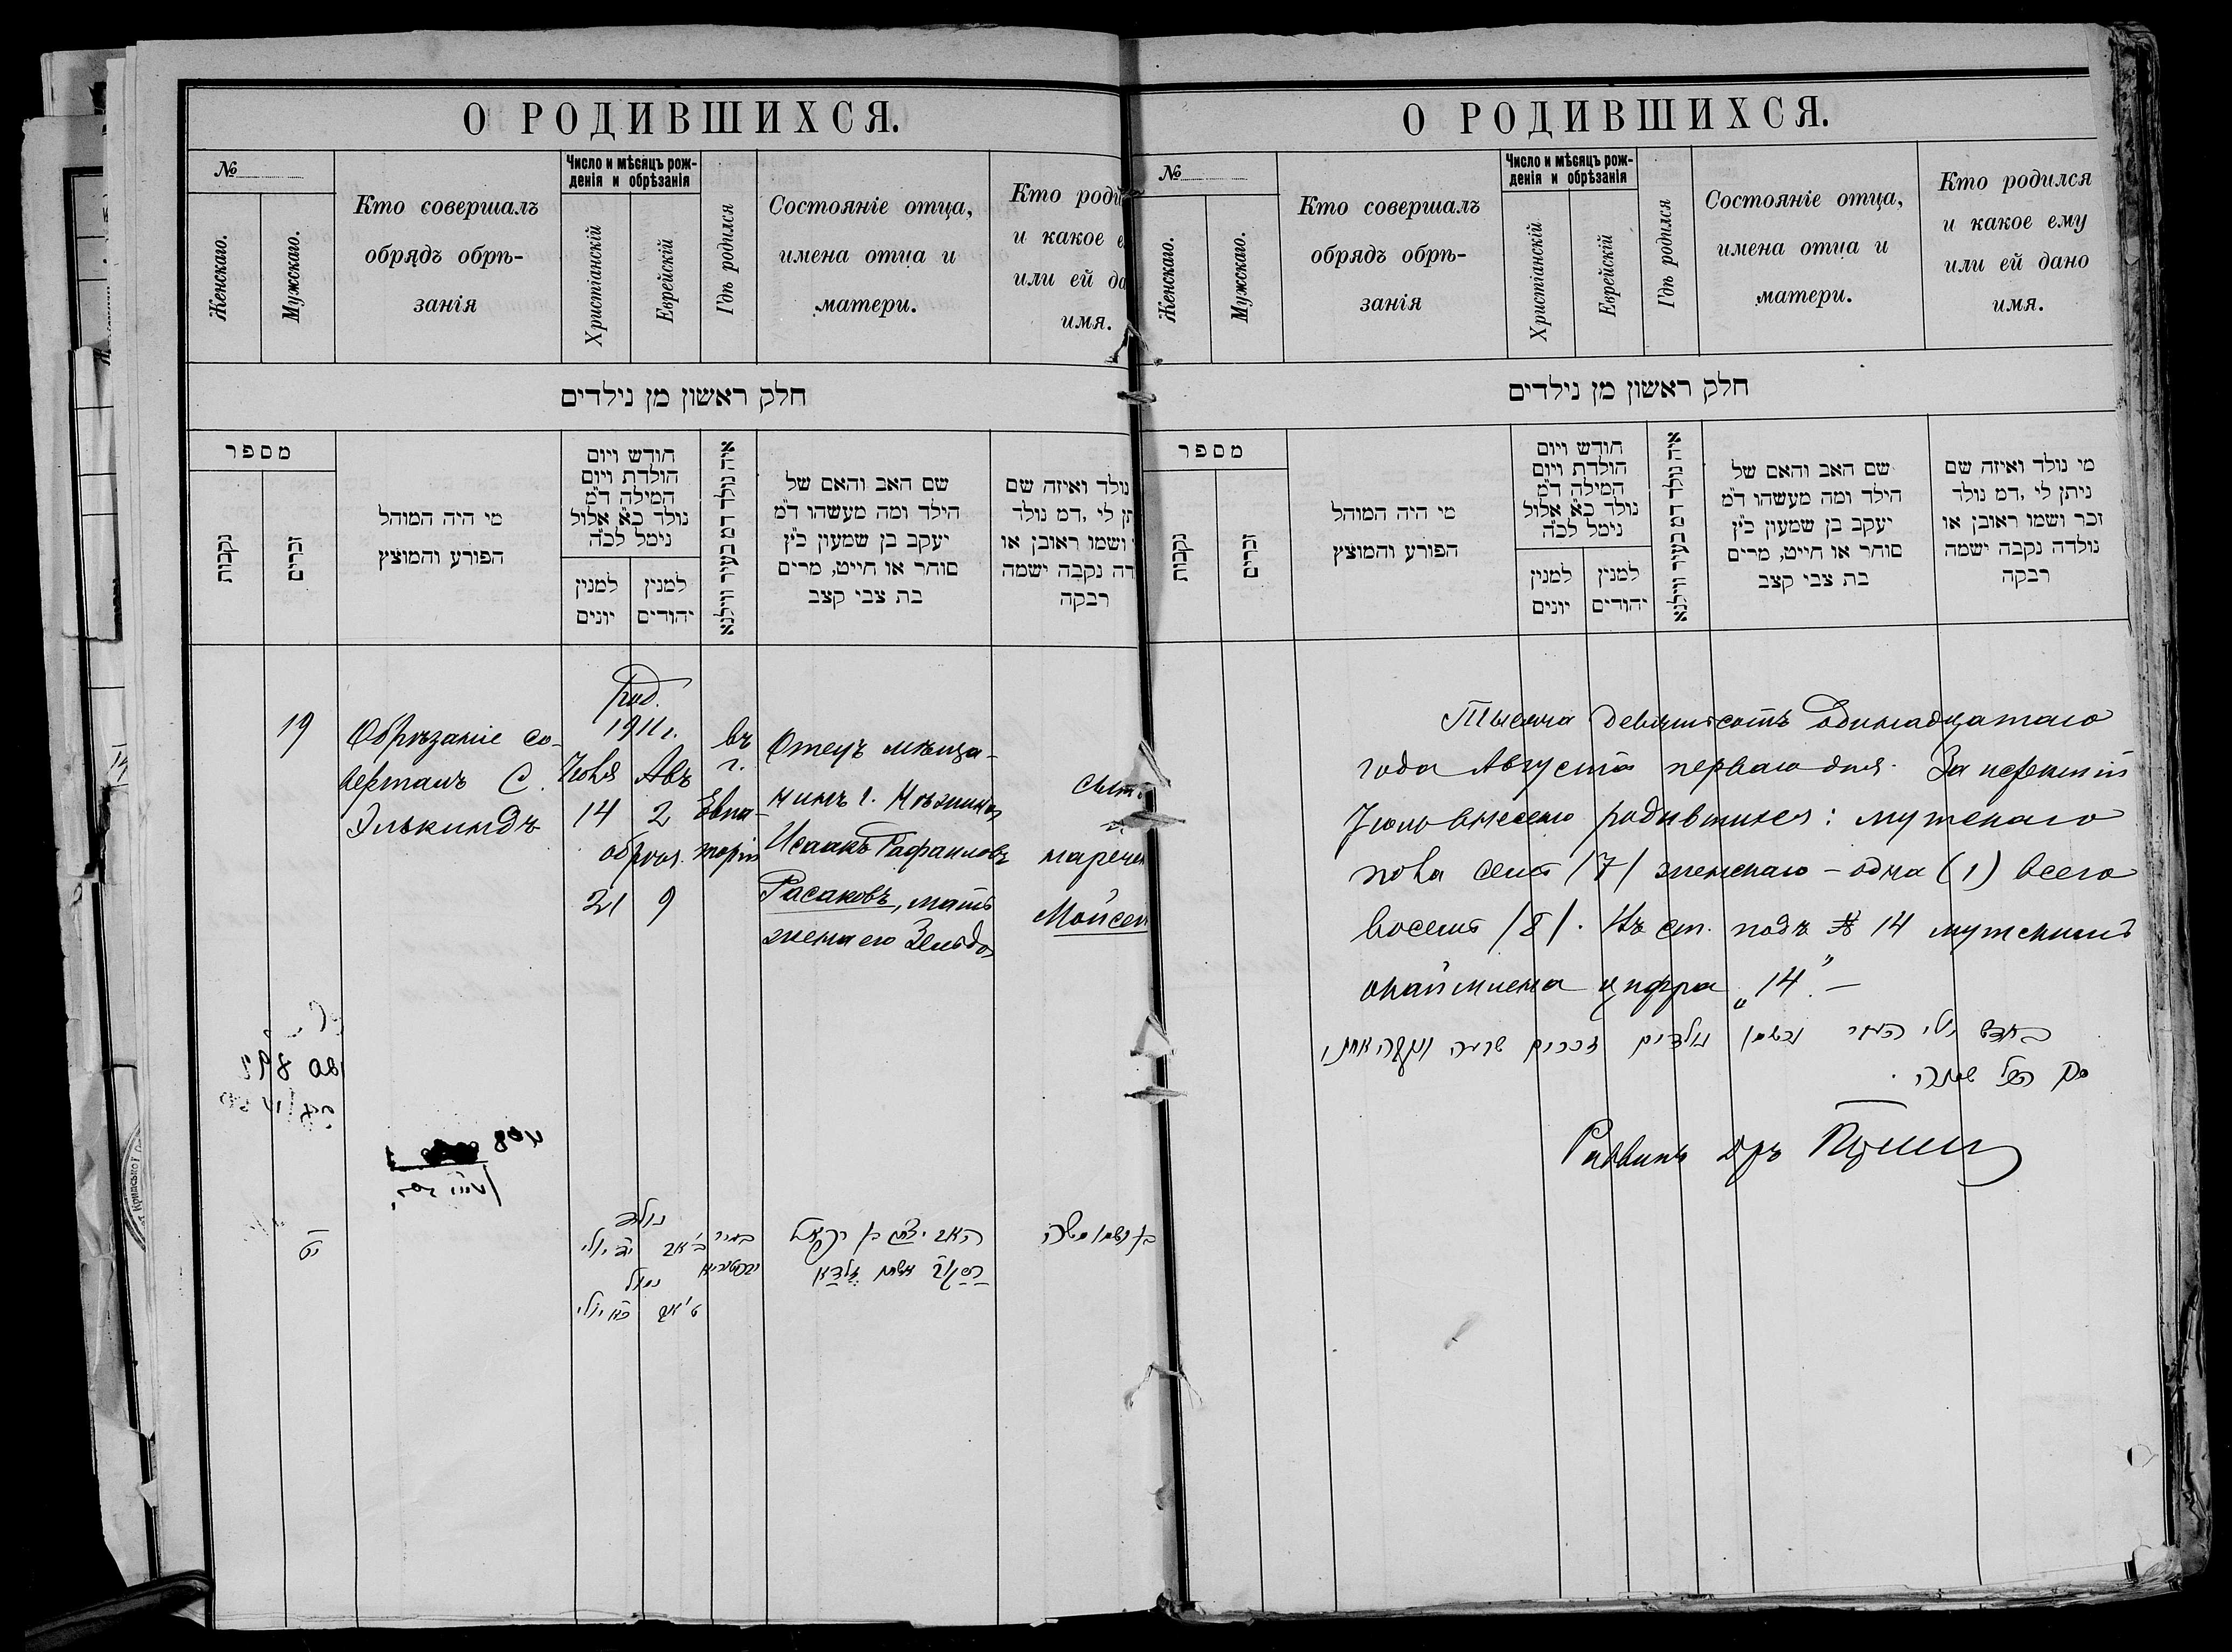 О РОДИВШИХСЯ.
№
Женскаго.
Мужскаго.
Кто совершалъ
обрядъ обрѣ-
занія
Число и мѣсяцъ рож-
денія и обрѣзанія
Христіанскій
Еврейскій
Гдѣ родился
Состояніе отца,
имена отца и
матери.
Кто роди
и какое е
или ей да
имя.
חלק ראשון מן נילדים
מספר
נקבות
זכרים
מי היה המוהל
הפורע והמוצץ
חודש ויום
הולדת ויום
המילה ד"מ
נולד כ"א אלול
נימל לכ"ה
למנין
יונים
למנין
יהודים
איה נולד דמ בעיר ווילנא
שם האב והאם של
הילד ומה מעשהו ד"מ
יעקב בן שמעון כ"ץ
סוחר או חייט, מרים
בת צבי קצב
נולד ואיזה שם
תן לי ,דמ נולד
ושמו ראובן או
דה נקבה ישמה
רבקה
19
Обрѣзаніе со-
вершалъ С.
Элькиндъ
род.
1911 г.
Іюля Авъ
14 2
обрѣз.
21 9
въ
г.
Евпа-
торіи
Отецъ мѣща-
нинъ г. Нѣжина
Исаакъ Рафаиловъ
Расаковъ, мать
жена его Зельда
сынъ
наречен
Мойсей
יט
נולד
ב' אב י"ד יולי
נמול
ט' אב כ"א יולי
בעיר
האב יצחק בן רפאל
אשתו זלדא
בן ושמו משה
О РОДИВШИХСЯ.
№
Женскаго.
Мужскаго.
Кто совершалъ
обрядъ обрѣ-
занія
Число и мѣсяцъ рож-
денія и обрѣзанія
Христіанскій
Еврейскій
Гдѣ родился
Состояніе отца,
имена отца и
матери.
Кто родился
и какое ему
или ей дано
имя.
חלק ראשון מן נילדים
מספר
נקבות
זכרים
מי היה המוהל
הפורע והמוצץ
חודש ויום
הולדת ויום
המילה ד"מ
נולד כ"א אלול
נימל לכ"ה
למנין
יונים
למנין
יהודים
איה נולד דמ בעיר ווילנא
שם האב והאם של
הילד ומה מעשהו ד"מ
יעקב בן שמעון כ"ץ
סוחר או חייט, מרים
בת צבי קצב
מי נולד ואיזה שם
ניתן לי ,דמ נולד
זכר ושמו ראובן או
נולדה נקבה ישמה
רבקה
Тысяча девятьсотъ одинадцатаго
года Августа перваго дня. За истекшій
Іюль внесено родившихся: мужскаго
пола семь /7/ женскаго – одна (1) всего
восемь /8/. Въ ст. подъ № 14 мужскимъ
окаймлена цифра „14". –
בחדש יולי העבר נרשמו נולדים זכרים שבעה ונקבה אחת,
סך הכל שמנה.
Раввинъ Дръ